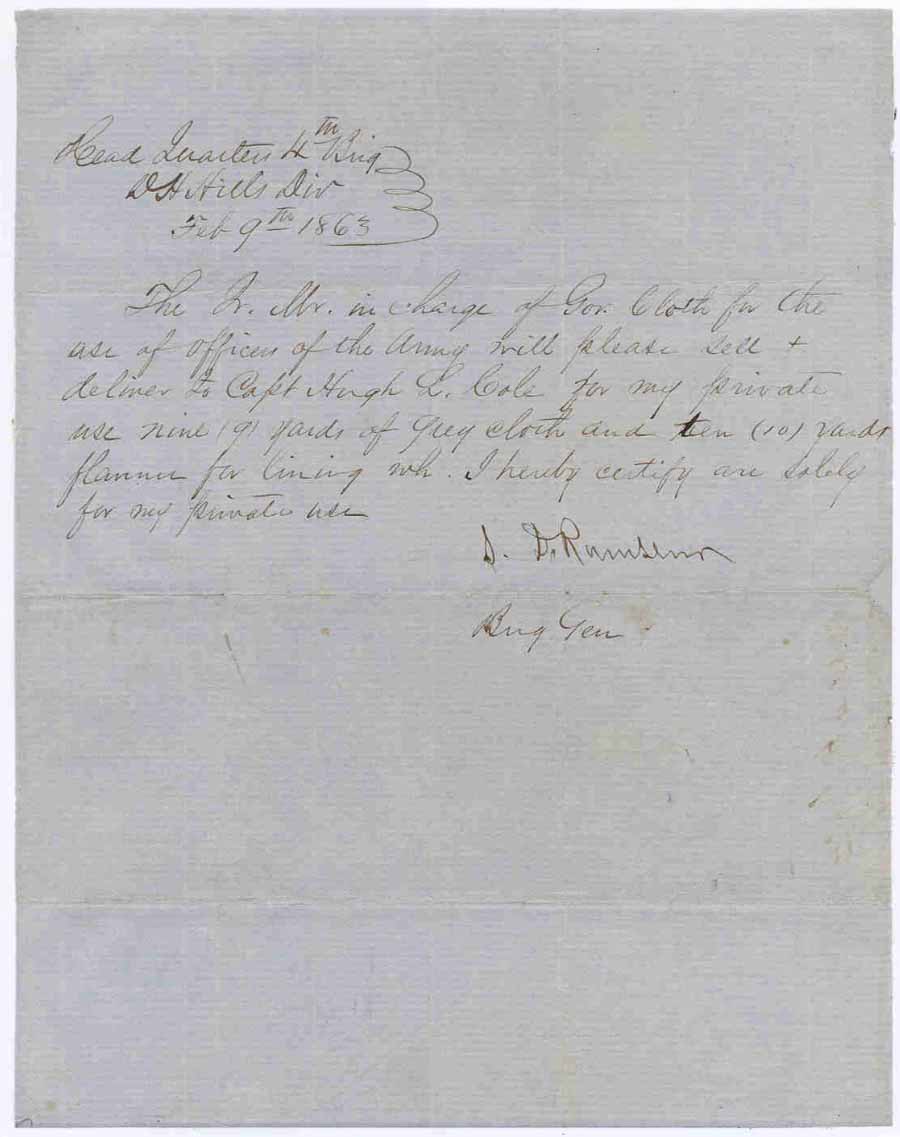 Head Quarters 4th Brig
D H Hills Div
Feb 9th 1863
The Qr. Mr. in charge of Gov. Cloth for the
use of officers of the Army will please sell +
deliver to Capt Hugh L. Cole for my private
use nine (9) yards of Grey cloth and ten (10) yards
flannel for lining wh. I hereby certify are solely
for my private use
S. D. Ramseur
Brig Gen